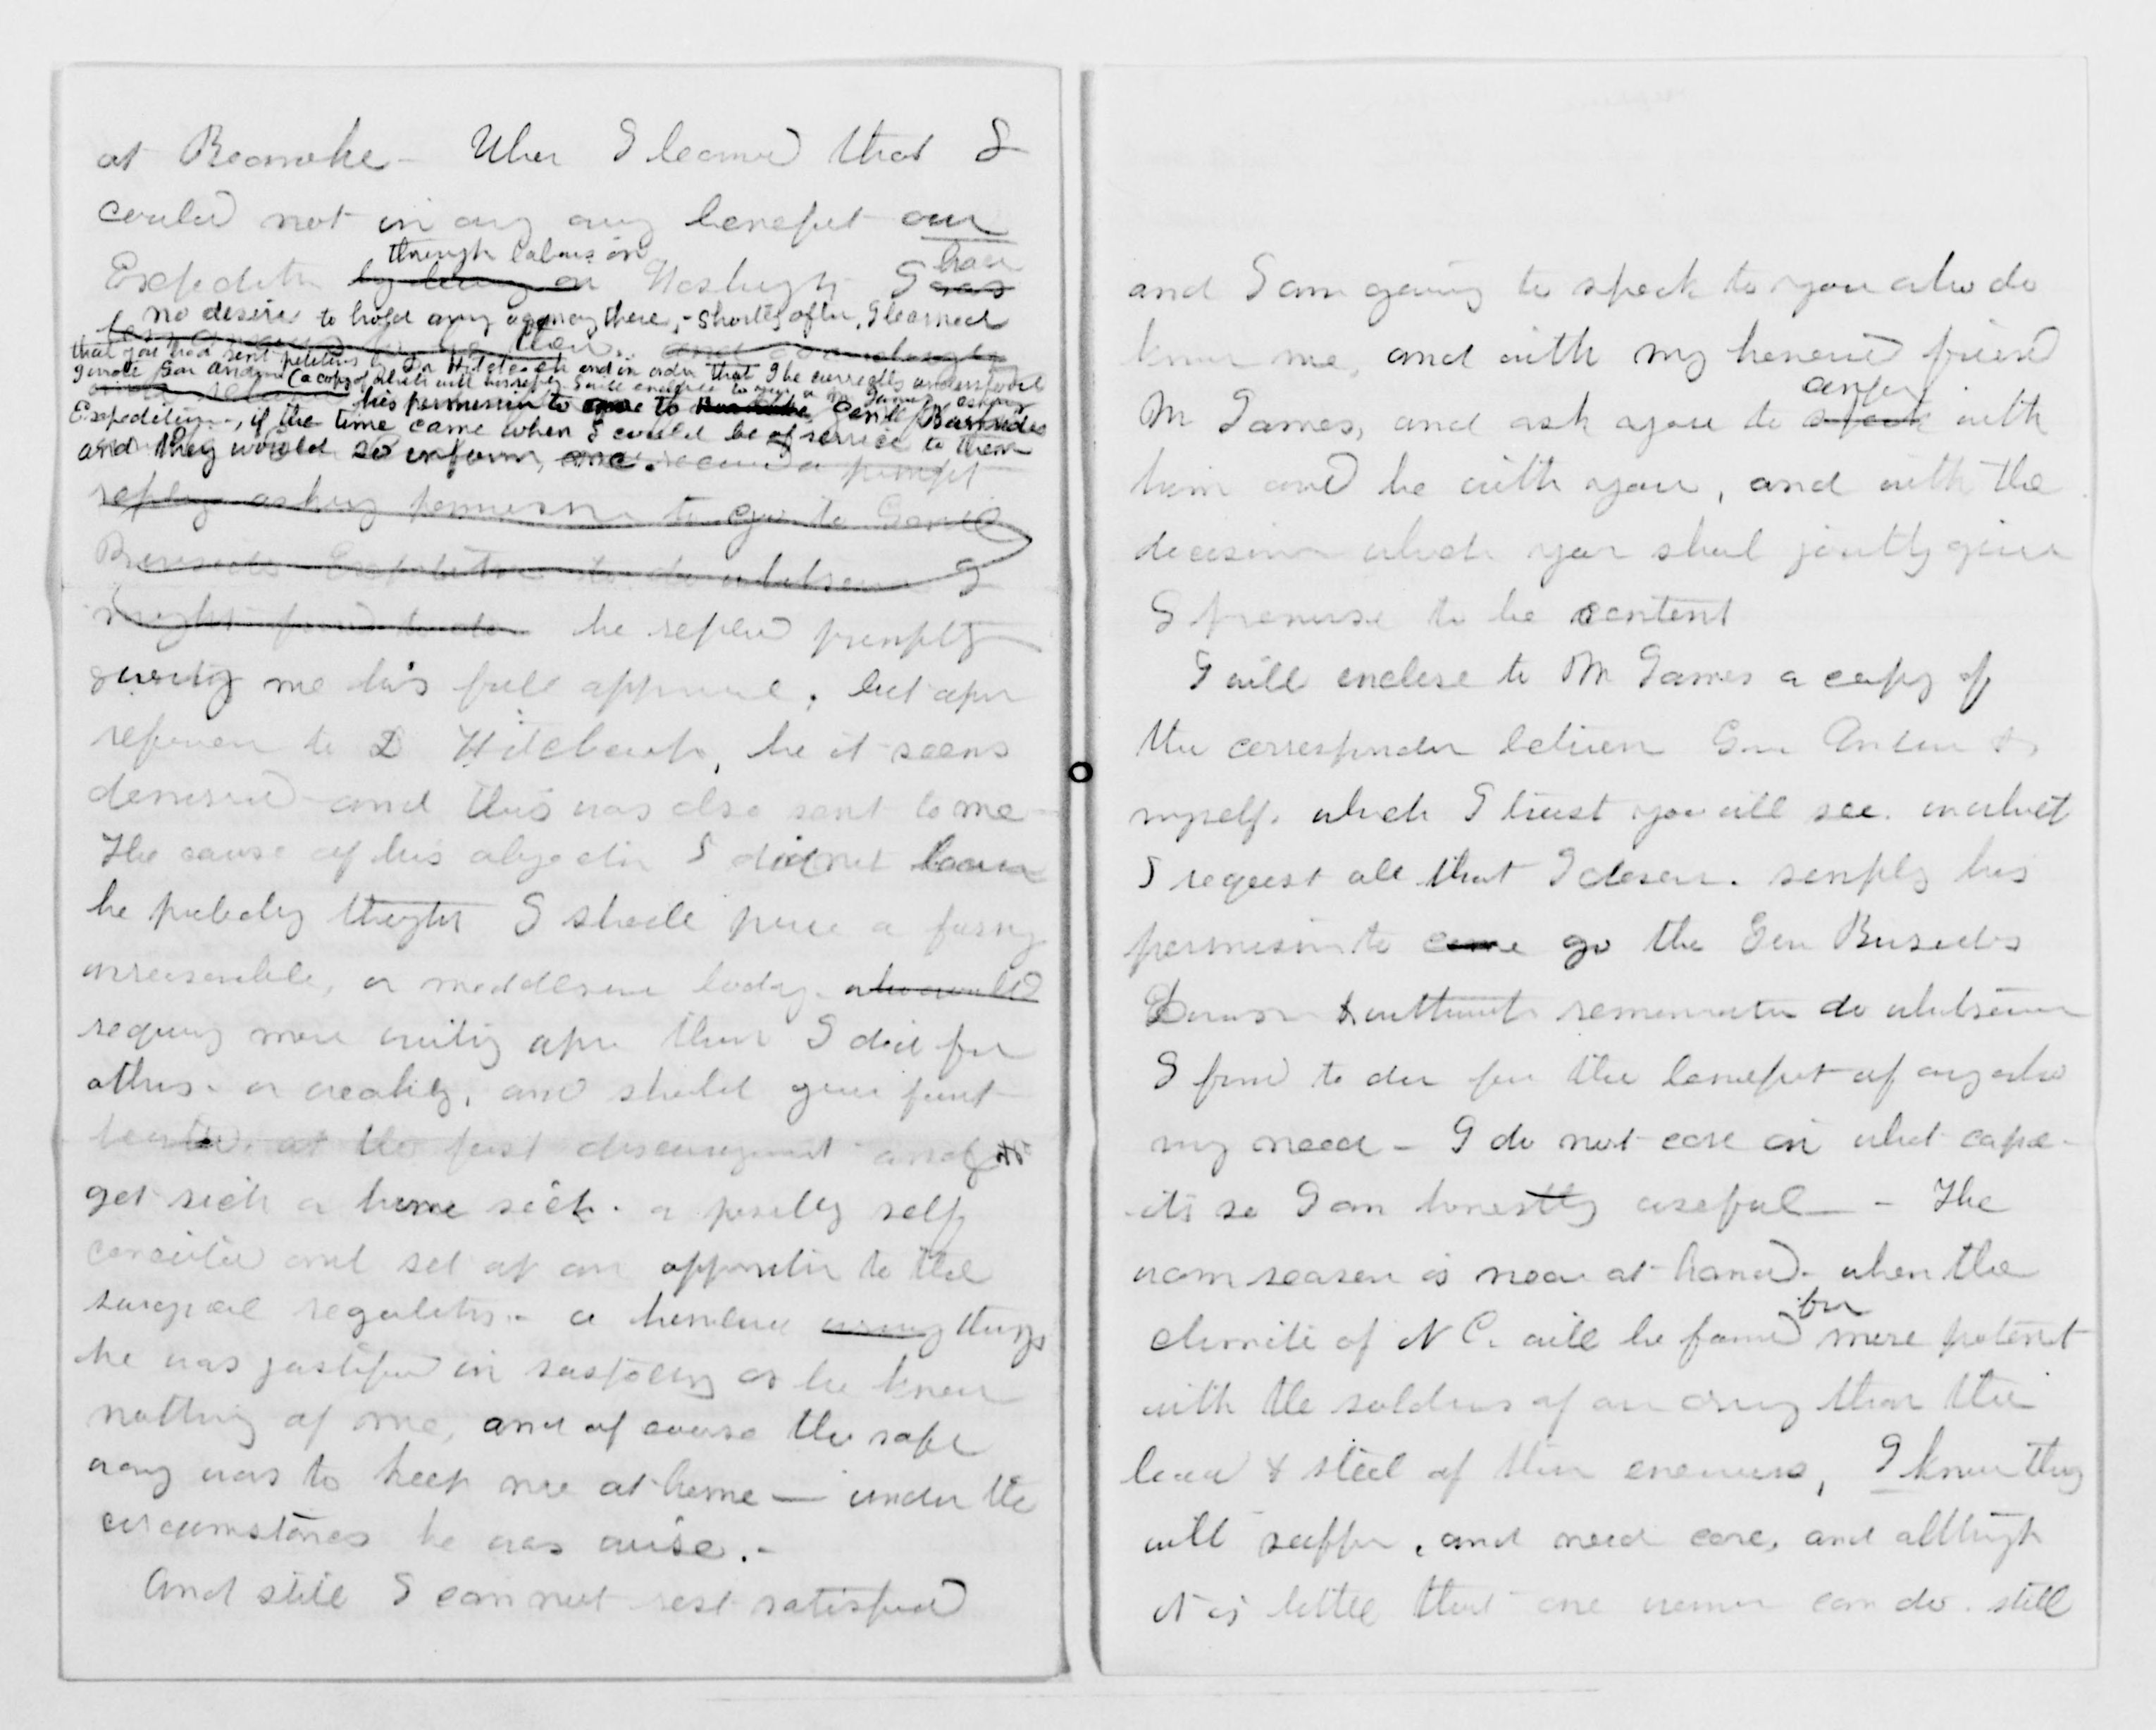 at Roanoke - When I learned that I
could not in any way benefit our
through labors in
Expedition by being in Washington I have was
no desire to hold any agency there, - Shortly after, I learned
that you had sent petitions to Dr Hitchcock and in order that I be correctly understood
I wrote Gov Andrew (a copy of which with his reply I will enclose to you or Mr James) asking
his permission to come to Roanoke, Genl Burnsides
Expedition, if the time came when I could be of service to them
and they would so inform, me. receive a prompt
reply asking permission to go to Genl
Burnsides Expedition to do whatsoever I
might find to do he replied promptly
giving me his full approval, but upon
reference to D Hitchcock, he it seems
demurred - and this was also sent to me -
The cause of his objection I did not learn
he probably thought I should prove a fussy
unreasonable, or meddlesome body. who would
requiring more waiting upon than I did for
others. or weakly, and should grow faint
hearted. at the first discouragement and
get sick or home sick. or possibly self
conceited and set up an opposition to the
surgical regulations. - a hundred wrong things
he was justified in suspecting as he knew
nothing of me, and of course the safe
way was to keep me at home — under the
circumstances he was wise. -
And still I can not rest satisfied
and I am going to speak to you who do
know me, and with my honored friend
confer
Mr James, and ask you to speak with
him and he with you, and with the
decision which you shall jointly give
I promise to be content
I will enclose to Mr James a copy of
the correspondence between Gov Andrew &
myself. which I trust you will see. in which
I request all that I desire. simply his
permission to come go the Gen Burnsides
Division & without remuneration do whatsoever
I find to do for the benefit of any who
my need - I do not care in what capac-
ity so I am honestly useful - - The
warm season is near at hand - when the
far
climate of N C. will be found more potent
with the soldiers of our army than the
lead & steel of their enemies, I know they
will suffer, and need care, and although
it is little that one woman can do. still